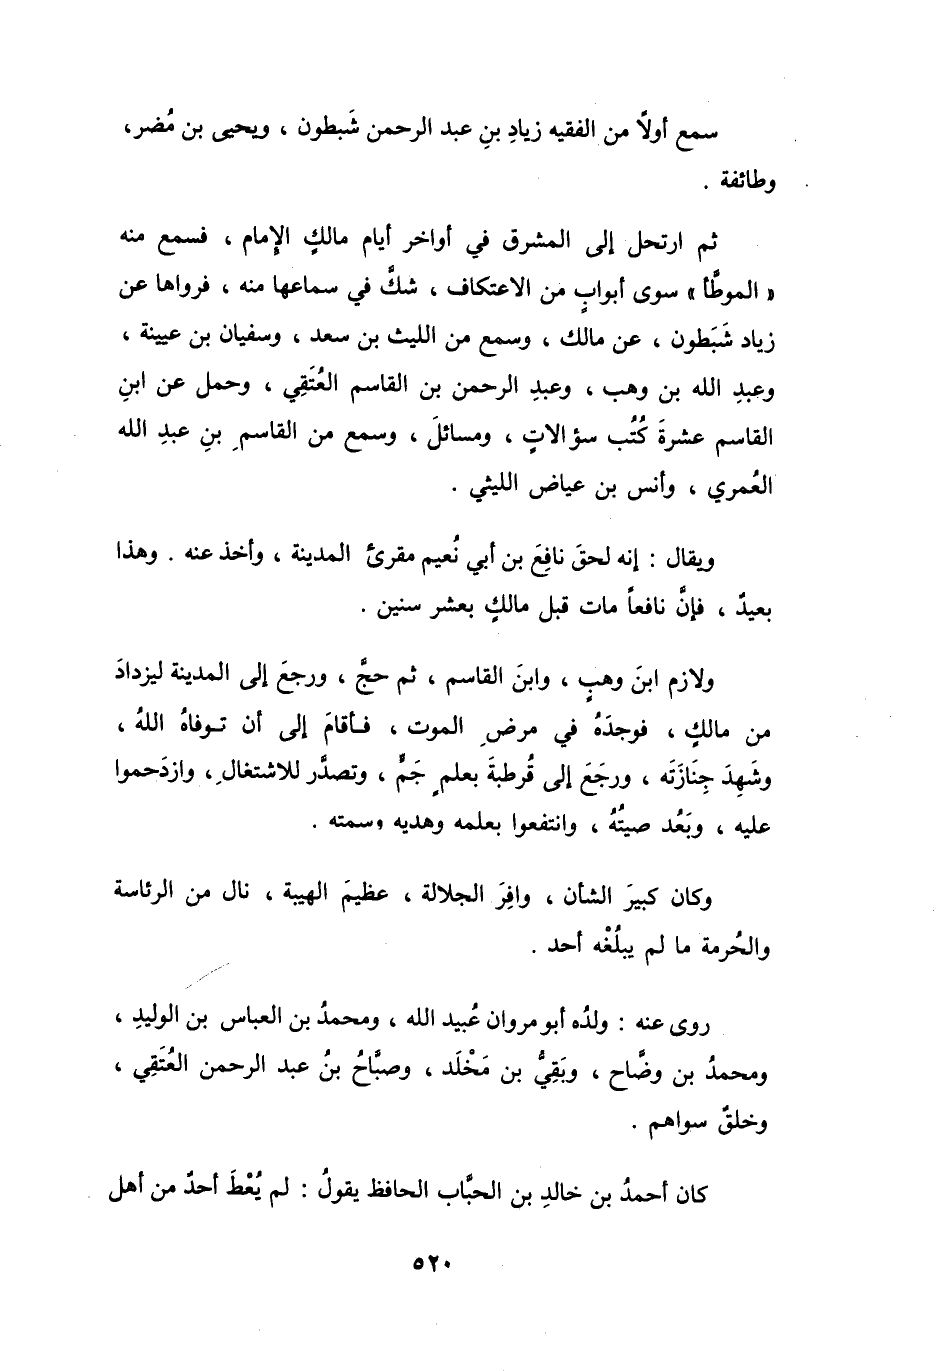 سمع أولاً من الفقيه زيادِ بنِ عبد الرحمن شَبطون ، ويحيى بن مُضر،
وطائفة .
ثم ارتحل إلى المشرق في أواخر أيام مالكٍ الإِمام ، فسمع منه
« الموطَّأ » سوى أبوابٍ من الاعتكاف ، شكَّ في سماعها منه ، فرواها عن
زياد شَبَطون ، عن مالك ، وسمع من الليث بن سعد ، وسفيان بن عيينة ،
وعبدِ الله بن وهب ، وعبدِ الرحمن بن القاسم العُتَقِي ، وحمل عن ابنِ
القاسم عشرةَ كُتُب سؤالاتٍ ، ومسائلَ ، وسمع من القاسمِ بنِ عبدِ الله
العُمري ، وأنس بن عياض الليثي .
ويقال : إنه لحقَ نافِعَ بن أبي نُعيم مقرئ المدينة ، وأخذ عنه . وهذا
بعيدٌ ، فإنَّ نافعاً مات قبل مالكٍ بعشر سنين .
ولازم ابنَ وهبٍ ، وابنَ القاسم ، ثم حجَّ ، ورجعَ إلى المدينة ليزدادَ
من مالكٍ ، فوجدَهُ في مرضِ الموت ، فأقامَ إلى أن توفاهُ اللهُ ،
وشَهِدَ جِنَازَتَه ، ورجَعَ إلى قُرطبةَ بعلمٍ جَمٍّ ، وتصدَّر للاشتغالِ، وازدَحموا
عليه ، وبَعُد صيتُهُ ، وانتفعوا بعلمه وهديه وسمته .
وكان كبيرَ الشأن ، وافِرَ الجلالة ، عظيمَ الهيبة ، نال من الرئاسة
والحُرمة ما لم يبلُغْه أحد .
روى عنه : ولدُه أبو مروان عُبيد الله ، ومحمدُ بن العباس بن الوليدِ ،
ومحمدُ بن وضَّاح ، وبَقِيُّ بن مَخْلَد ، وصبَّاحُ بنُ عبد الرحمن العُتَقِي ،
وخلقٌ سواهم .
كان أحمدُ بن خالدِ بن الحبَّاب الحافظ يقولُ : لم يُعْطَ أحدٌ من أهل
٥٢٠